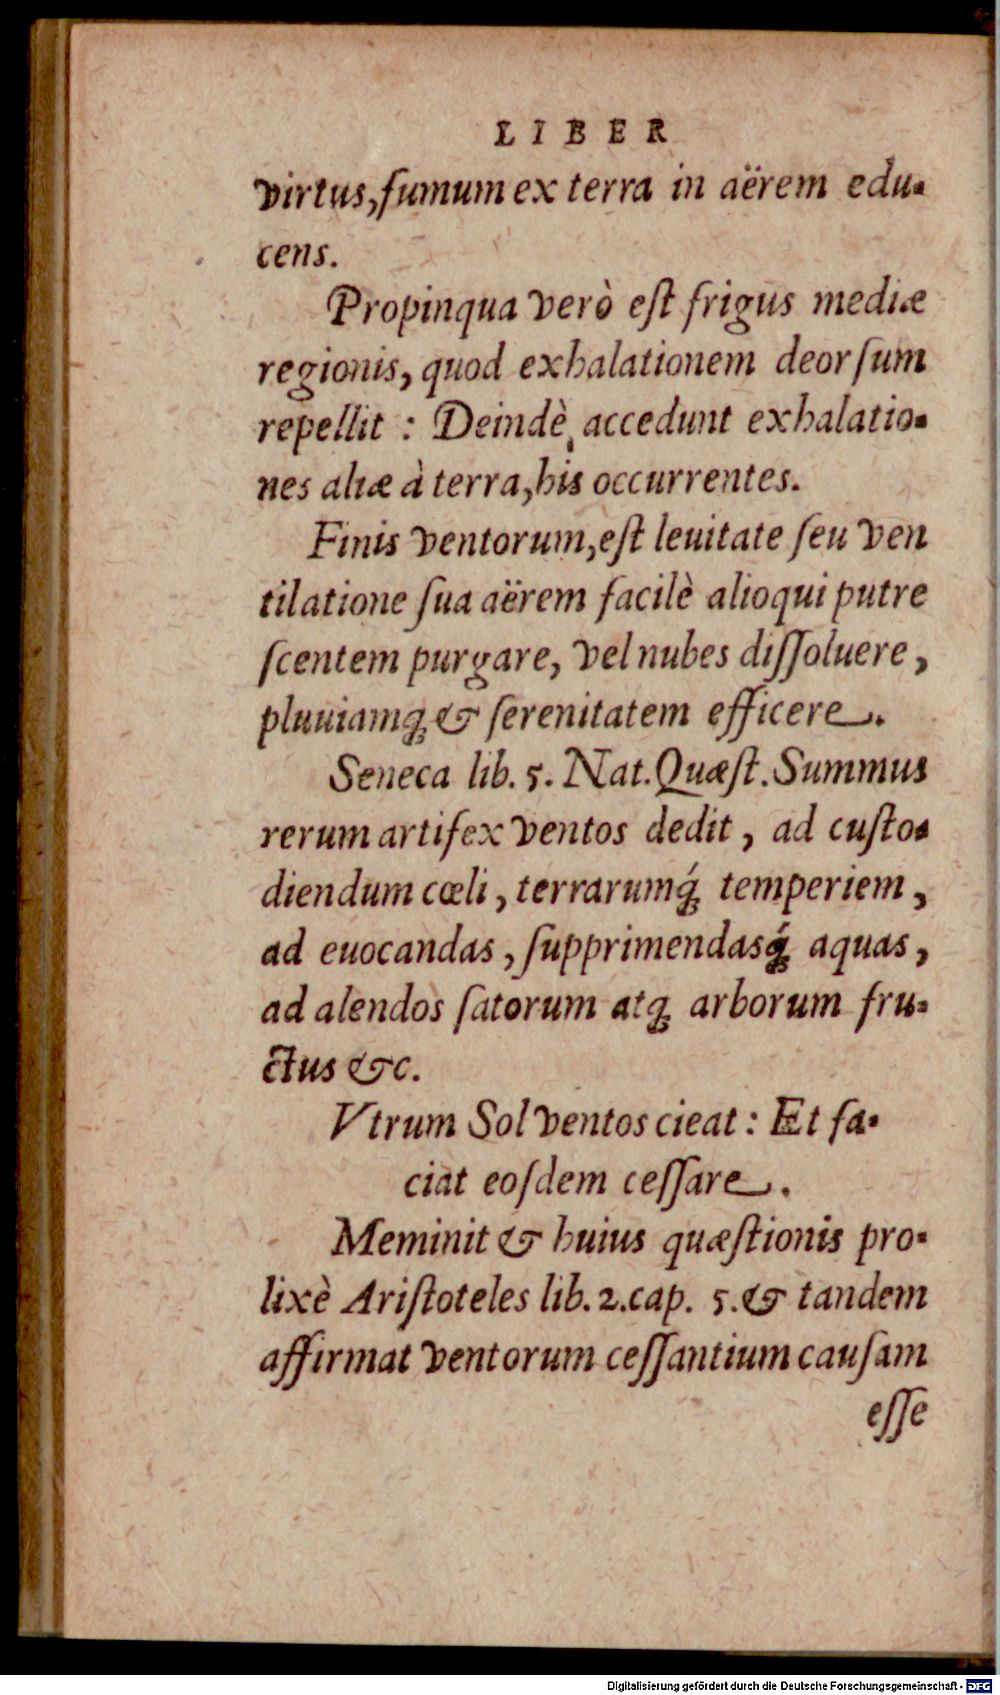 LIBER
virtus, fumum ex terra in aërem edu-
cens.
Propinqua verò eſt frigus mediæ
regionis, quod exhalationem deorſum
repellit : Deindè accedunt exhalatio-
nes aliæ à terra, his occurrentes.
Finis ventorum, eſt leuitate ſeu ven
tilatione ſua aërem facilè alioqui putre
ſcentem purgare, vel nubes diſſoluere,
pluuiamq́; & ſerenitatem efficere.
Seneca lib. 5. Nat. Quæſt. Summus
rerum artifex ventos dedit, ad cuſto-
diendum cœli, terrarumq́; temperiem,
ad euocandas, ſupprimendasq́; aquas,
ad alendos ſatorum atq; arborum fru-
ctus &c.
Vtrum Sol ventos cieat : Et fa-
ciat eoſdem ceſſare.
Meminit & huius quæſtionis pro-
lixè Ariſtoteles lib. 2. cap. 5. & tandem
affirmat ventorum ceſſantium cauſam
eſſe
Digitalisierung gefördert durch die Deutsche Forschungsgemeinschaft - DFG